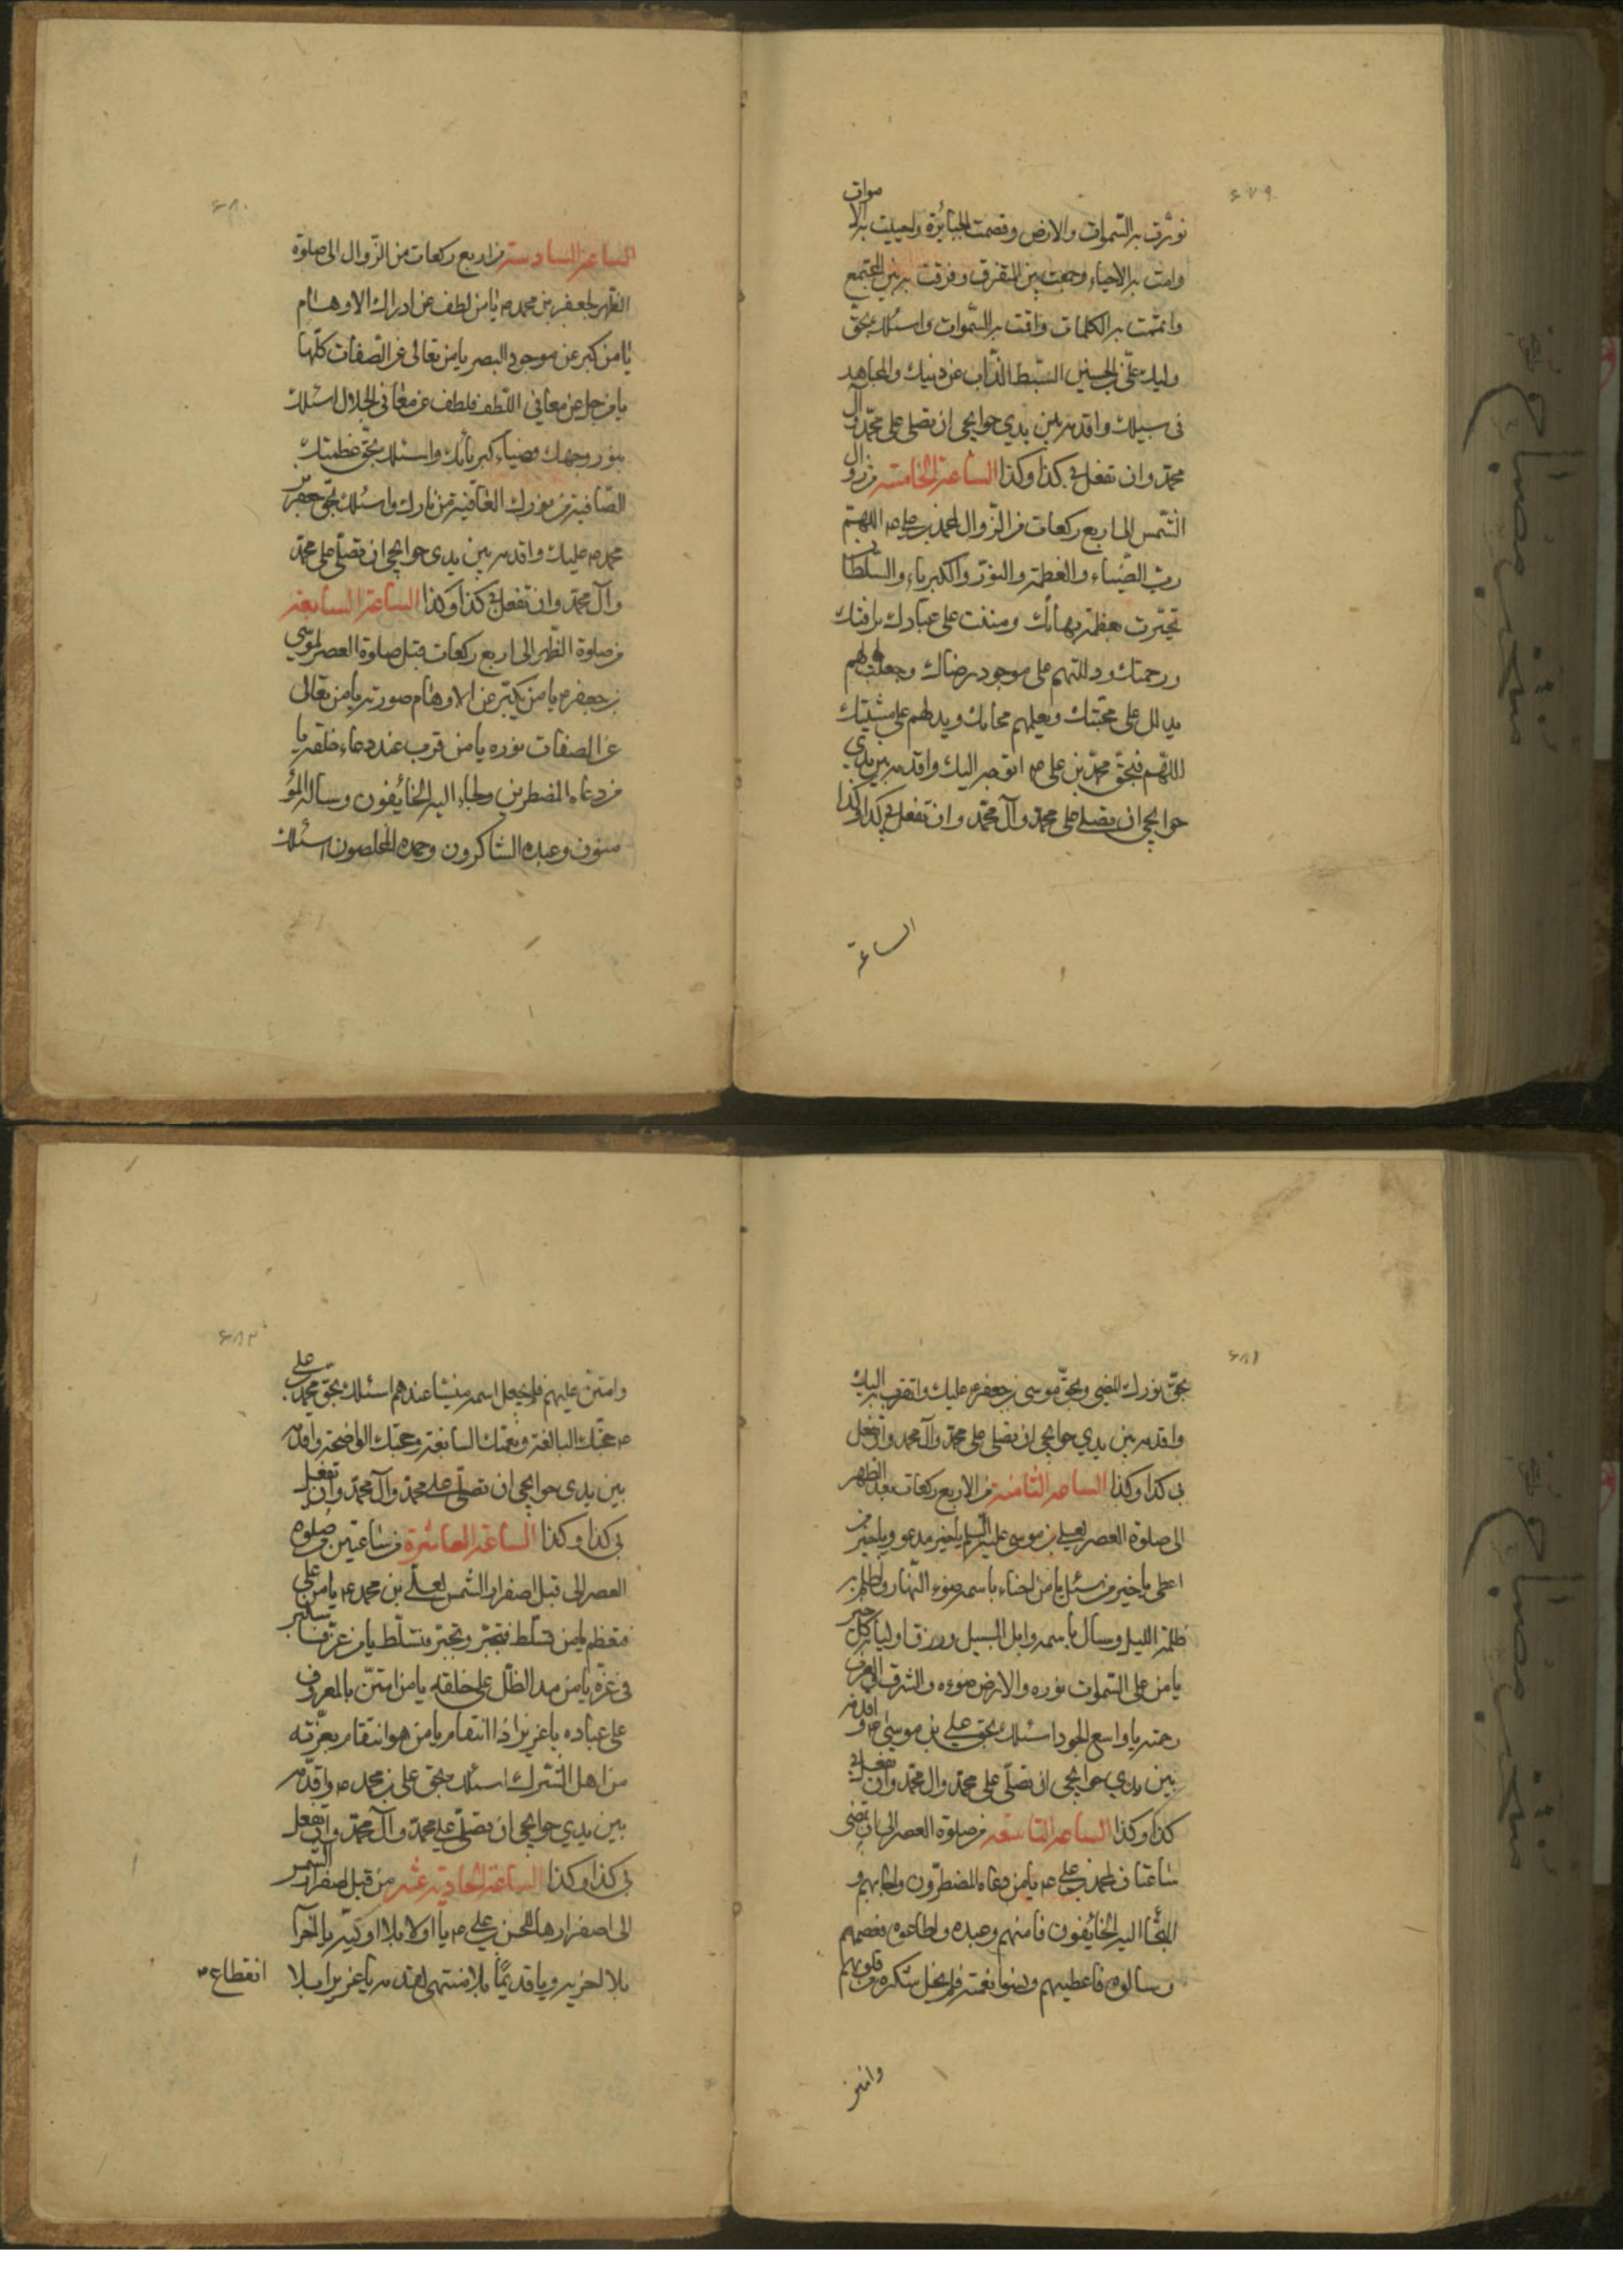 ۶۷۹
نورت به السموات والارض وقصمت الجبابرة واحييت به الا
موات
وامت به الاحياء وجمعت بين المتفرق وفرقت به بين المجتمع
واتممت به الكلمات واقمت به السموات واسئلك بحق
وليك علی بن الحسين السبط الذاب عن دينك والمجاهد
فى سبيلك واقدمه بين يدي حوايجى ان تصلی علی محمد و آل
محمد وان تفعل بى كذا وكذا الساعة الخامسة من زوال
الشمس الى اربع ركعات من الزوال لمحمد بن علی ع اللهم
رب الضياء والعظمة والنور والكبرياء والسلطان
تجبرت بعظمة بهائك ومننت على عبادك برافتك
ورحمتك ودللتهم على موجود رضاك وجعلت لهم
دليلا يدلهم على محبتك ويعلمهم محابك ويدلهم على مشيتك
اللهم فبحق محمد بن على ع اتوجه اليك واقدمه بين يدي
حوايجى ان تصلى على محمد وآل محمد وان تفعل بى كذا وكذا
الساعة
۶۸۰
الساعة السادسة من اربع ركعات من الزوال الى صلوة
الظهر لجعفر بن محمد ع يا من لطف عن ادراك الاوهام
يا من كبر عن موجود البصر يا من تعالى عن الصفات كلها
يا من جل عن معانى اللطف ولطف عن معانى الجلال اسئلك
بنور وجهك وضياء كبريائك واسئلك بحق عظمتك
الصافية من نورك العافية من نارك واسئلك بحق جعفر بن
محمد ع عليك واقدمه بين يدى حوايجى ان تصلى على محمد
وآل محمد وان تفعل بى كذا وكذا الساعة السابعة
من صلوة الظهر الى اربع ركعات قبل صلوة العصر لموسى
بن جعفر ع يا من تكبر عن الاوهام صورته يا من تعالى
عن الصفات نوره يا من قرب عند دعاء خلقه يا
من دعاه المضطرين ولجاء اليه الخائفون وساله المؤ
منون وعبده الشاكرون وحمده المخلصون اسئلك
۶۸۱
بحق نورك المضىء وبحق موسى بن جعفر ع عليك واتقرب به اليك
واقدمه بين يدي حوايجى ان تصلى على محمد وآل محمد وان تفعل
بى كذا وكذا الساعة الثامنة من الاربع ركعات بعد الظهر
الى صلوة العصر لعلى بن موسى عليه السلم يا خير مدعو ويا خير من
اعطى يا خير من سئل يا من اضاء باسمه ضوء النهار واظلم به
ظلمة الليل وسال باسمه وابل السيل ورزق اوليائه كل خير
يا من علا السموات نوره والارض ضوءه والشرق والغرب
رحمته يا واسع الجود اسئلك بحق على بن موسى ع و اقدمه
بين يدي حوايجى ان تصلى على محمد وال محمد وان تفعل بى
كذا وكذا الساعة التاسعة من صلوة العصر الى ان تمضى
ساعتان لمحمد بن على ع يا من دعاه المضطرون واجابهم و
التجأ اليه الخائفون فامنهم وعبده واطاعوه فعصمهم
وسالوه فاعطيهم ونسوا نعمته فلم يخل شكره من قلوبهم
وامتن
۶۸۲
وامتن عليهم فلم يجعل اسمه منسيا عندهم اسئلك بحق محمد بن على
ع حجتك البالغة ونعمتك السابغة وحجتك الواضحة واقدمه
بين يدى حوايجى ان تصلى على محمد وآل محمد وان تفعل
بى كذا وكذا الساعة العاشرة من ساعتين من صلوة
العصر الى قبل اصفرار الشمس لعلى بن محمد ع يا من على
فتعظم يا من تسلط فتجبر وتجبر فتسلط يا من عز فاستكبر
فى عزه يا من مد الظل على خلقه يا من امتن بالمعروف
على عباده يا عزيز اذا انتقام يا من هو انتقام بعزته
من اهل الشرك اسئلك بحق على بن محمد ع واقدمه
بين يدي حوايجى ان تصلى على محمد وآل محمد وان تفعل
بى كذا وكذا الساعة الحادية عشر من قبل اصفرار الشمس
الى اصفرارها للحسن بن على ع يا اولا بلا اولية يا آخرا
بلا اخريه ويا قديما بلا منتهى لقدمه يا عزيزا بلا
انقطاع